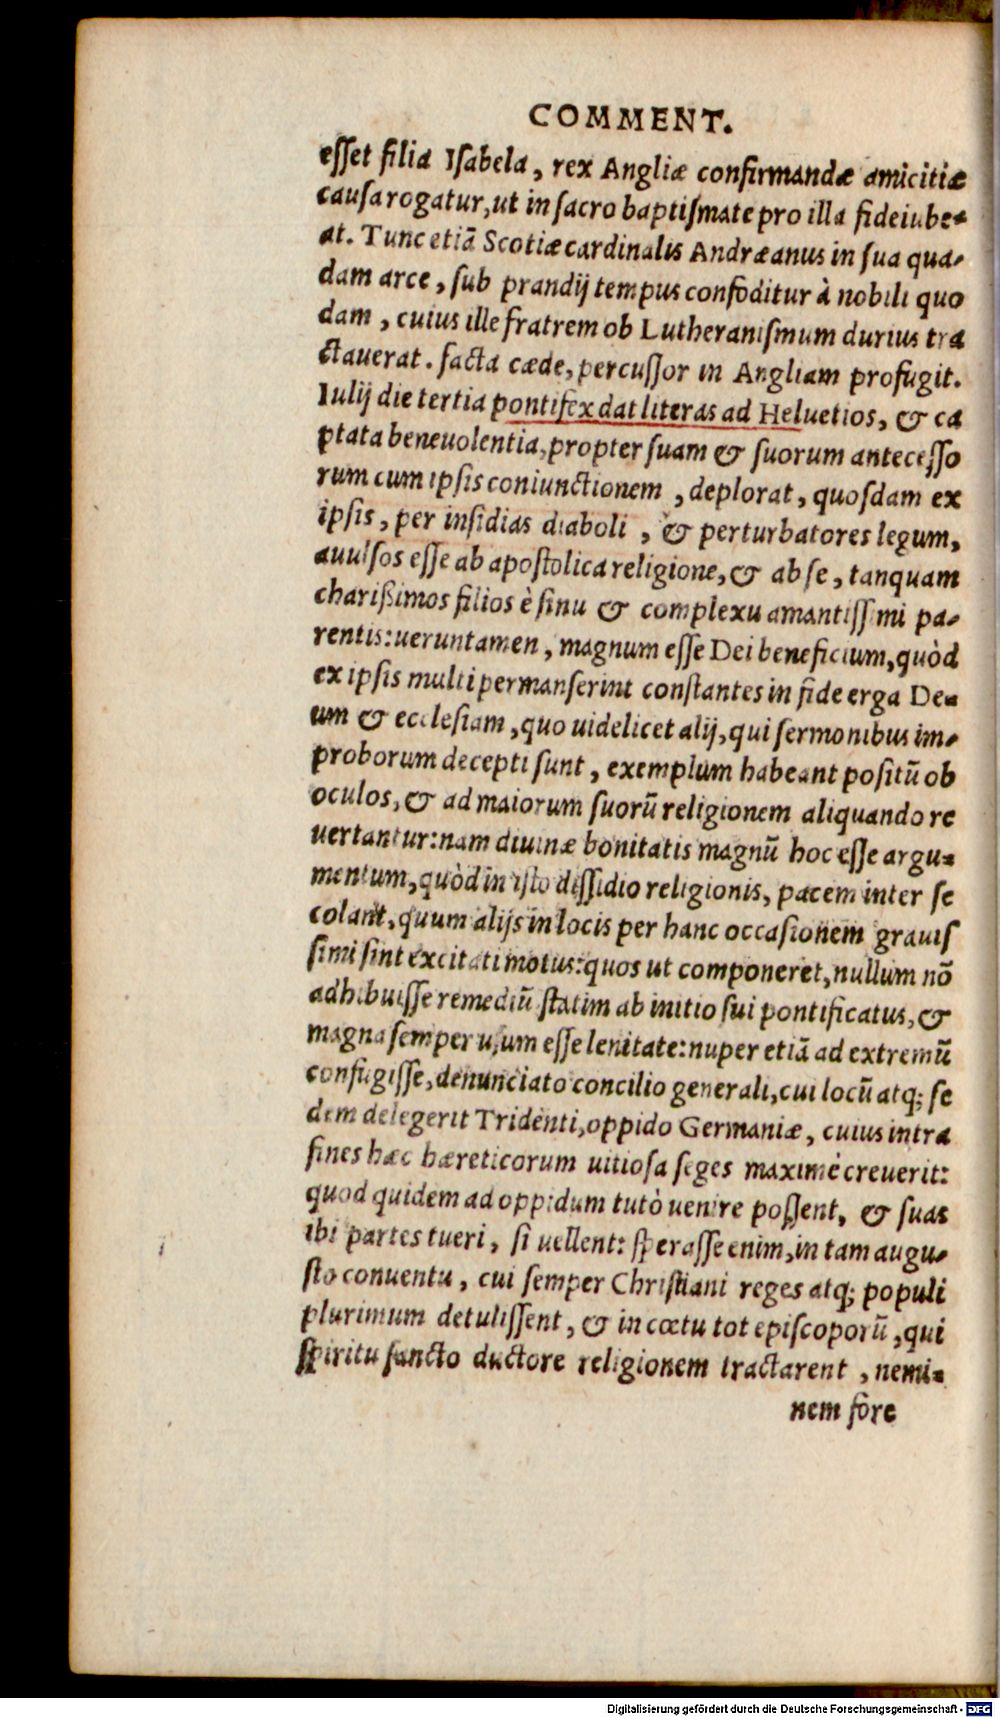 COMMENT.
esset filia Isabela, rex Angliæ confirmandæ amicitiæ
causa rogatur, ut in sacro baptismate pro illa fideiube-
at. Tunc etiā Scotiæ cardinalis Andræanus in sua qua-
dam arce, sub prandij tempus confoditur à nobili quo
dam, cuius ille fratrem ob Lutheranismum durius tra
ctauerat. facta cæde, percussor in Angliam profugit.
Iulij die tertia pontifex dat literas ad Heluetios, & ca
ptata beneuolentia, propter suam & suorum antecesso
rum cum ipsis coniunctionem, deplorat, quosdam ex
ipsis, per insidias diaboli, & perturbatores legum,
auulsos esse ab apostolica religione, & ab se, tanquam
charißimos filios è sinu & complexu amantissimi pa-
rentis: ueruntamen, magnum esse Dei beneficium, quòd
ex ipsis multi permanserint constantes in fide erga De-
um & ecclesiam, quo uidelicet alij, qui sermonibus im-
proborum decepti sunt, exemplum habeant positū ob
oculos, & ad maiorum suorū religionem aliquando re
uertantur: nam diuinæ bonitatis magnū hoc esse argu-
mentum, quòd in isto dissidio religionis, pacem inter se
colant, quum alijs in locis per hanc occasionem grauis
simi sint excitati motus: quos ut componeret, nullum nō
adhibuisse remediū statim ab initio sui pontificatus, &
magna semper usum esse lenitate: nuper etiā ad extremū
confugisse, denunciato concilio generali, cui locū atq; se
dem delegerit Tridenti, oppido Germaniæ, cuius intra
fines hæc hæreticorum uitiosa seges maximè creuerit:
quod quidem ad oppidum tutò uenire possent, & suas
ibi partes tueri, si uellent: sperasse enim, in tam augu-
sto conuentu, cui semper Christiani reges atq; populi
plurimum detulissent, & in cœtu tot episcoporū, qui
spiritu sancto ductore religionem tractarent, nemi-
nem fore
Digitalisierung gefördert durch die Deutsche Forschungsgemeinschaft - DFG